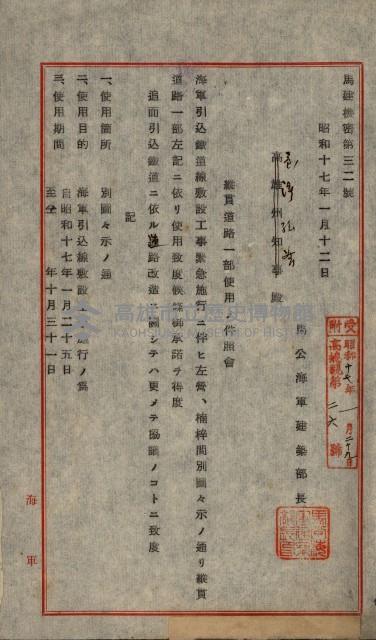 馬建機密第三二號
昭和十七年一月十二日
馬公海軍建築部長
高雄州知事殿
縱貫道路一部使用ノ件照會
海軍引込鐵道線敷設工事緊急施行ニ伴ヒ左營、楠梓間別圖々示ノ通リ縱貫
道路一部左記ニ依リ使用致度候條御承諾ヲ得度
追而引込鐵道ニ依ル道路改造ニ關シテハ更メテ協議ノコトニ致度
記
一、使用箇所 別圖々示ノ通
二、使用目的 海軍引込線敷設 施行ノ爲
三、使用期間 自昭和十七年一月二十五日
至仝 年十月三十一日
受附
昭和十七年一月二十九日
第二六號
海軍
高雄市立歷史博物館
KAOHSIUNG MUSEUM OF HISTORY